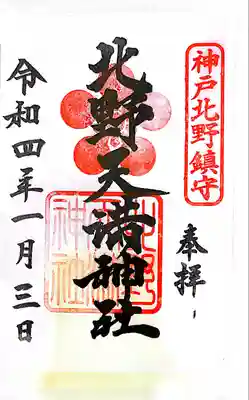 神戸北野鎮守
奉拝
北野天満神社
北野天満神社
令和四年一月三日